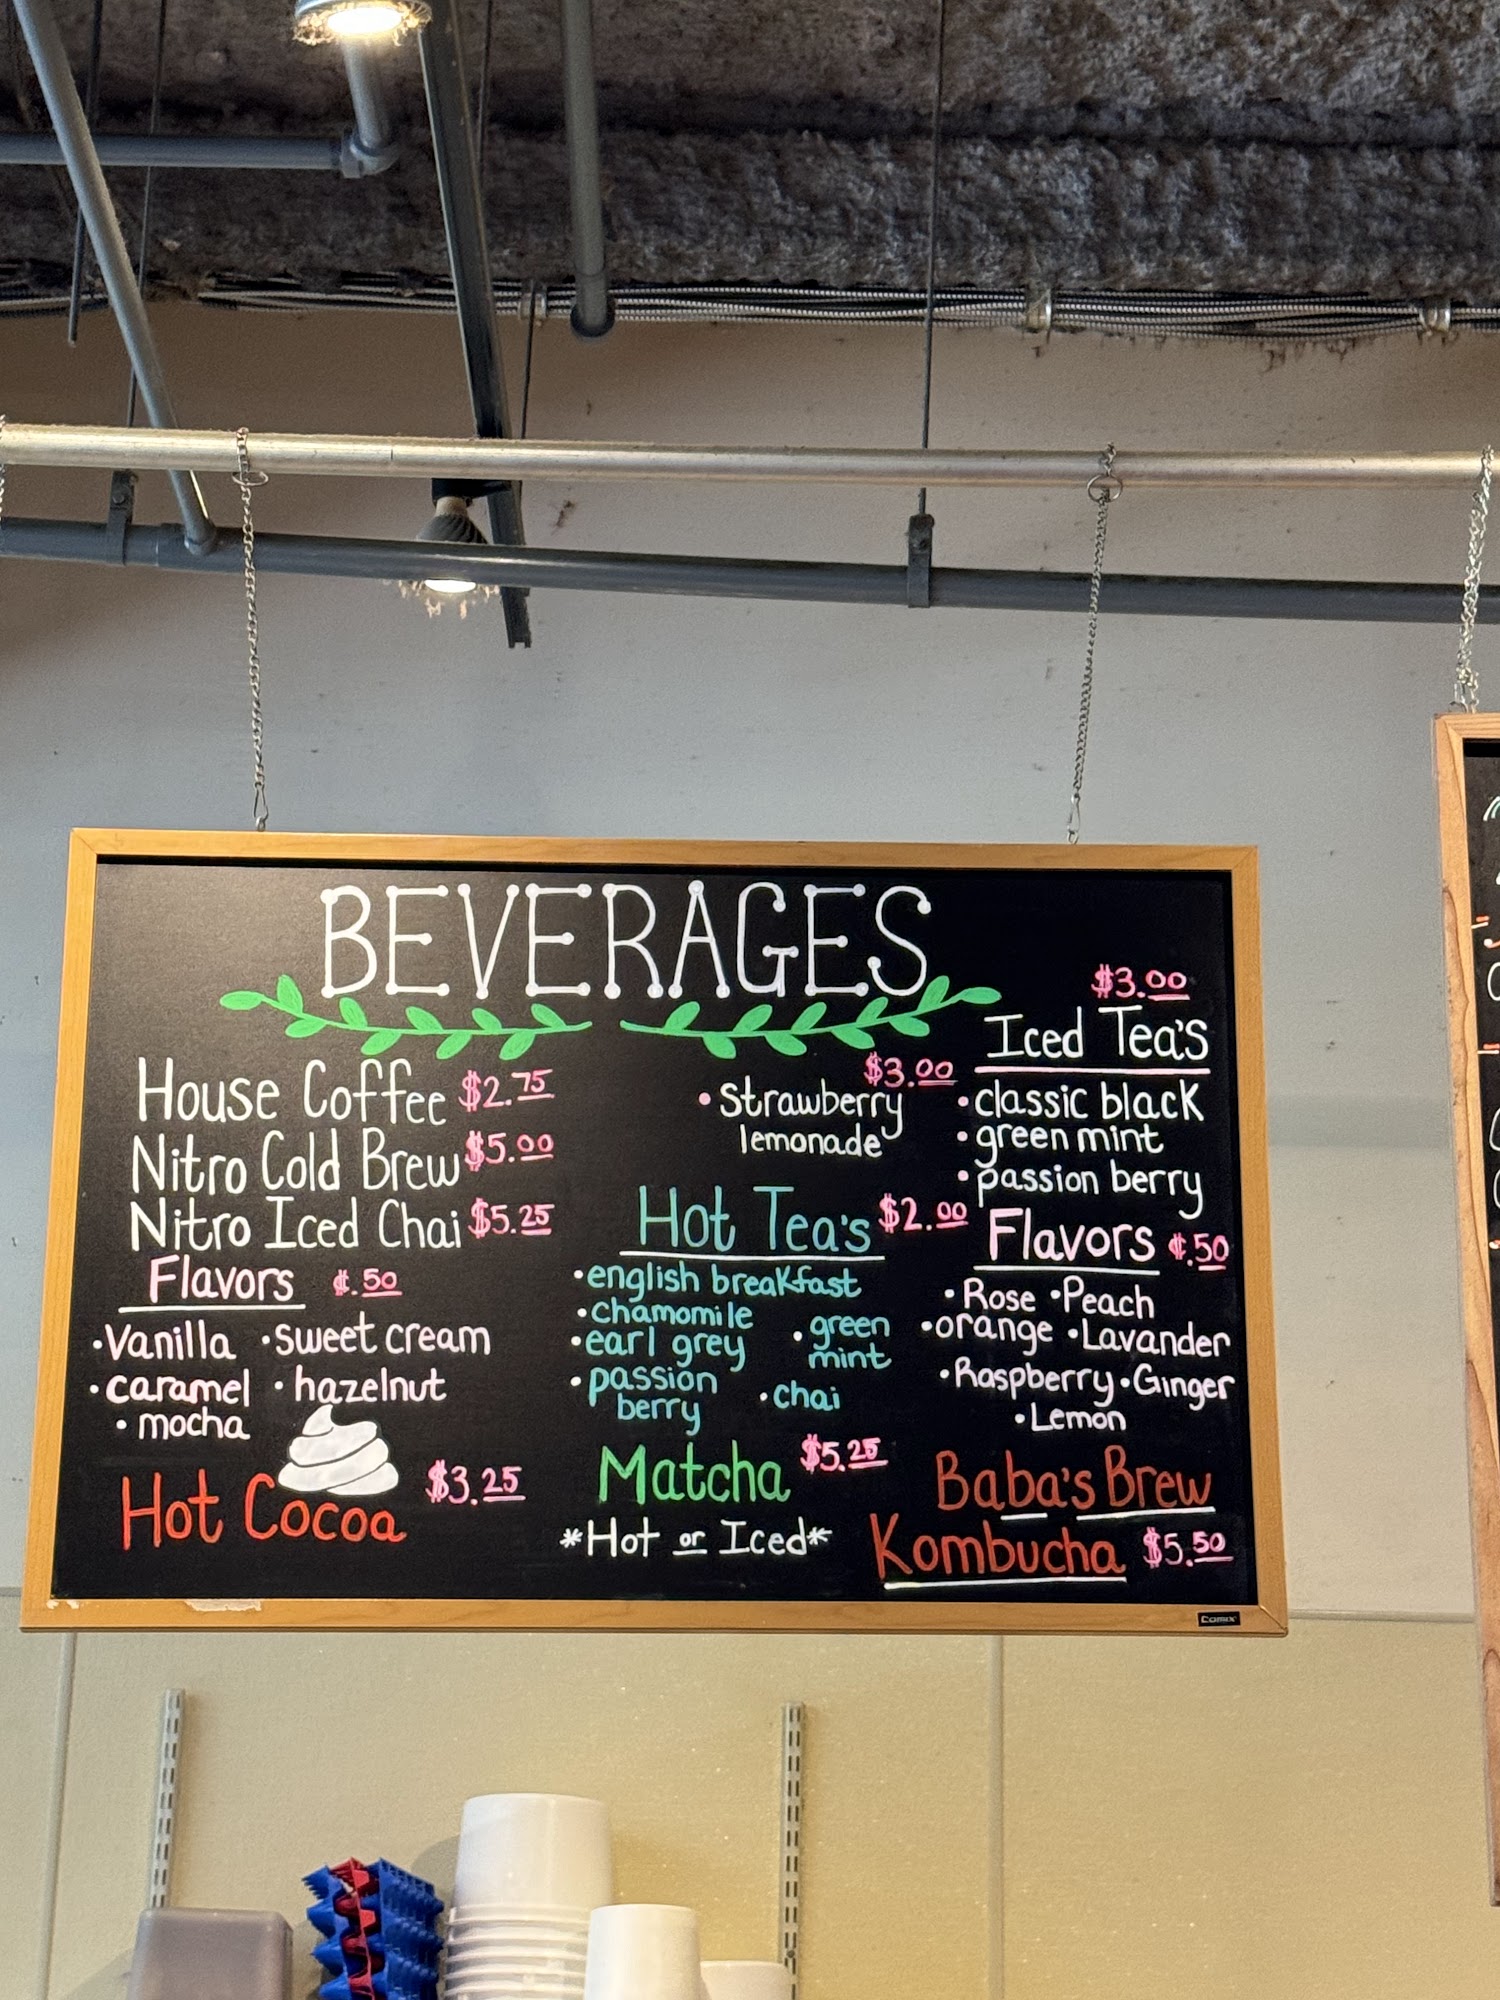 BEVERAGES
House Coffee $2.75
Nitro Cold Brew $5.00
Nitro Iced Chai $5.25
Flavors ¢.50
•Vanilla •sweet cream
•caramel •hazelnut
•mocha
Hot Cocoa $3.25
$3.00
•strawberry
lemonade
Hot Tea's $2.00
•english breakfast
•chamomile
•earl grey
•green
mint
•passion
berry
•chai
Matcha $5.25
*Hot or Iced*
$3.00
Iced Tea's
•classic black
•green mint
•passion berry
Flavors ¢.50
•Rose •Peach
•orange •Lavander
•Raspberry •Ginger
•Lemon
Baba's Brew
Kombucha $5.50